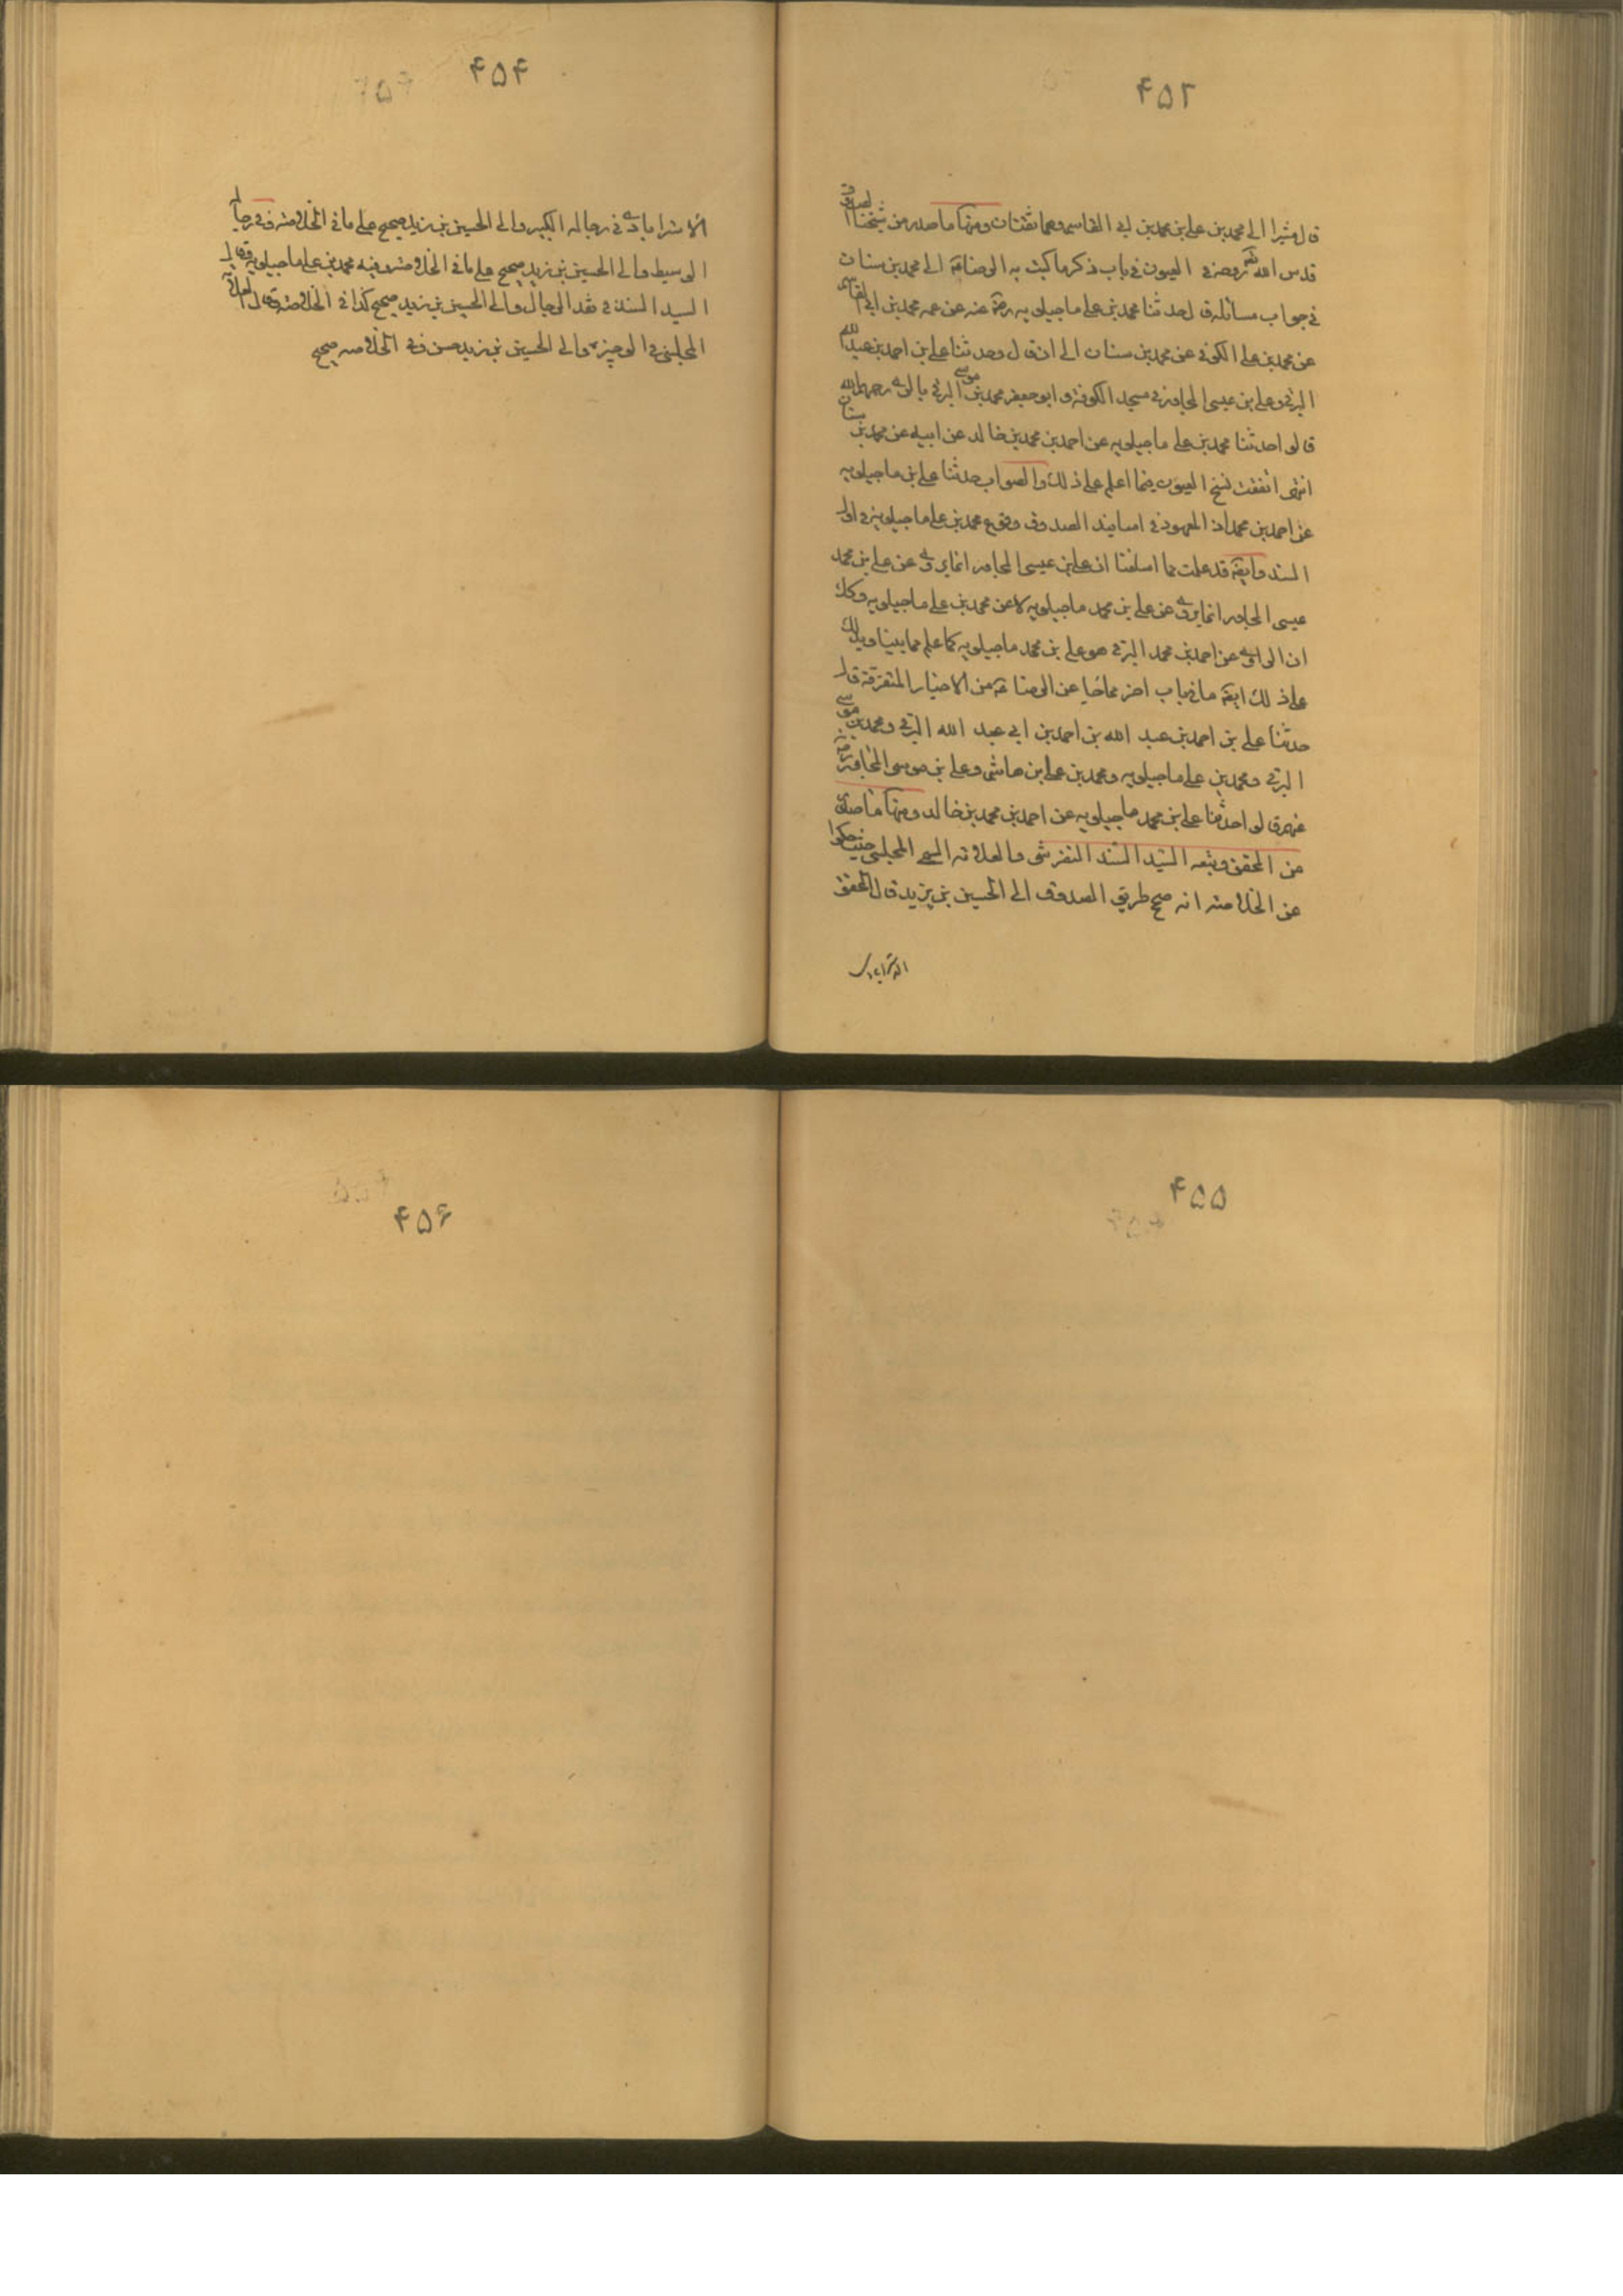 ۴۵۳
قال مشيرا الى محمد بن على بن محمد بن ابى القاسم وهما ثقتان ومنها ما صدر من شيخنا الصدوق
قدس الله روحه فى العيون فى باب ذكر ما كتب به الرضا الى محمد بن سنان
فى جواب مسائله قال حدثنا محمد بن على ماجيلويه رضى عنه عن عمه محمد بن ابى القاسم
عن محمد بن على الكوفى عن محمد بن سنان الى ان قال وحدثنا على بن احمد بن عبد الله
البرقى وعلى بن عيسى المجاور فى مسجد الكوفة وابو جعفر محمد بن موسى البرقى بالرى رحمهم الله
قالوا حدثنا محمد بن على ماجيلويه عن احمد بن محمد بن خالد عن ابيه عن محمد بن سنان
انتهى اتفقت نسخ العيون فيما اعلم على ذلك والصواب حدثنا على بن ماجيلويه
عن احمد بن محمد اذ المعهود فى اسانيد الصدوق وقوع محمد بن على ماجيلويه فى اول
السند وايضا قد علمت مما اسلفنا ان على بن عيسى المجاور انما يروى عن على بن محمد
عيسى المجاور انما يروى عن على بن محمد ماجيلويه لا عن محمد بن على ماجيلويه وكذا
ان الراوى عن احمد بن محمد البرقى هو على بن محمد ماجيلويه كما علم مما بينا ويدلك
على ذلك ايضا ما فى باب اخر مما جاء عن الرضا من الاخبار المتفرقة قال
حدثنا على بن احمد بن عبد الله بن احمد بن ابى عبد الله البرقى ومحمد بن موسى
البرقى ومحمد بن على ماجيلويه ومحمد بن على بن هاشم وعلى بن موسى المجاور رضى
عنهم قالوا حدثنا على بن محمد ماجيلويه عن احمد بن محمد بن خالد ومنها ما صدر
من المحقق وتبعه السيد السند التفرشى والعلامة السمى المجلسى حيث حكوا
عن الخلاصه انه صحح طريق الصدوق الى الحسين بن يزيد قال المحقق
الاسترابادى
۴۵۴
الاسترابادى فى رجاله الكبير والى الحسين بن يزيد صحيح على ما فى الخلاصه وفى رجاله
الوسيط والى الحسين بن زيد صحيح على ما فى الخلاصه وفيه محمد بن على ماجيلويه وقال
السيد السند فى نقد الرجال والى الحسين بن يزيد صحيح كذا فى الخلاصه وقال العلامة
المجلسى فى الوجيزه والى الحسين بن يزيد حسن وفى الخلاصه صحيح
۴۵۵
۴۵۶